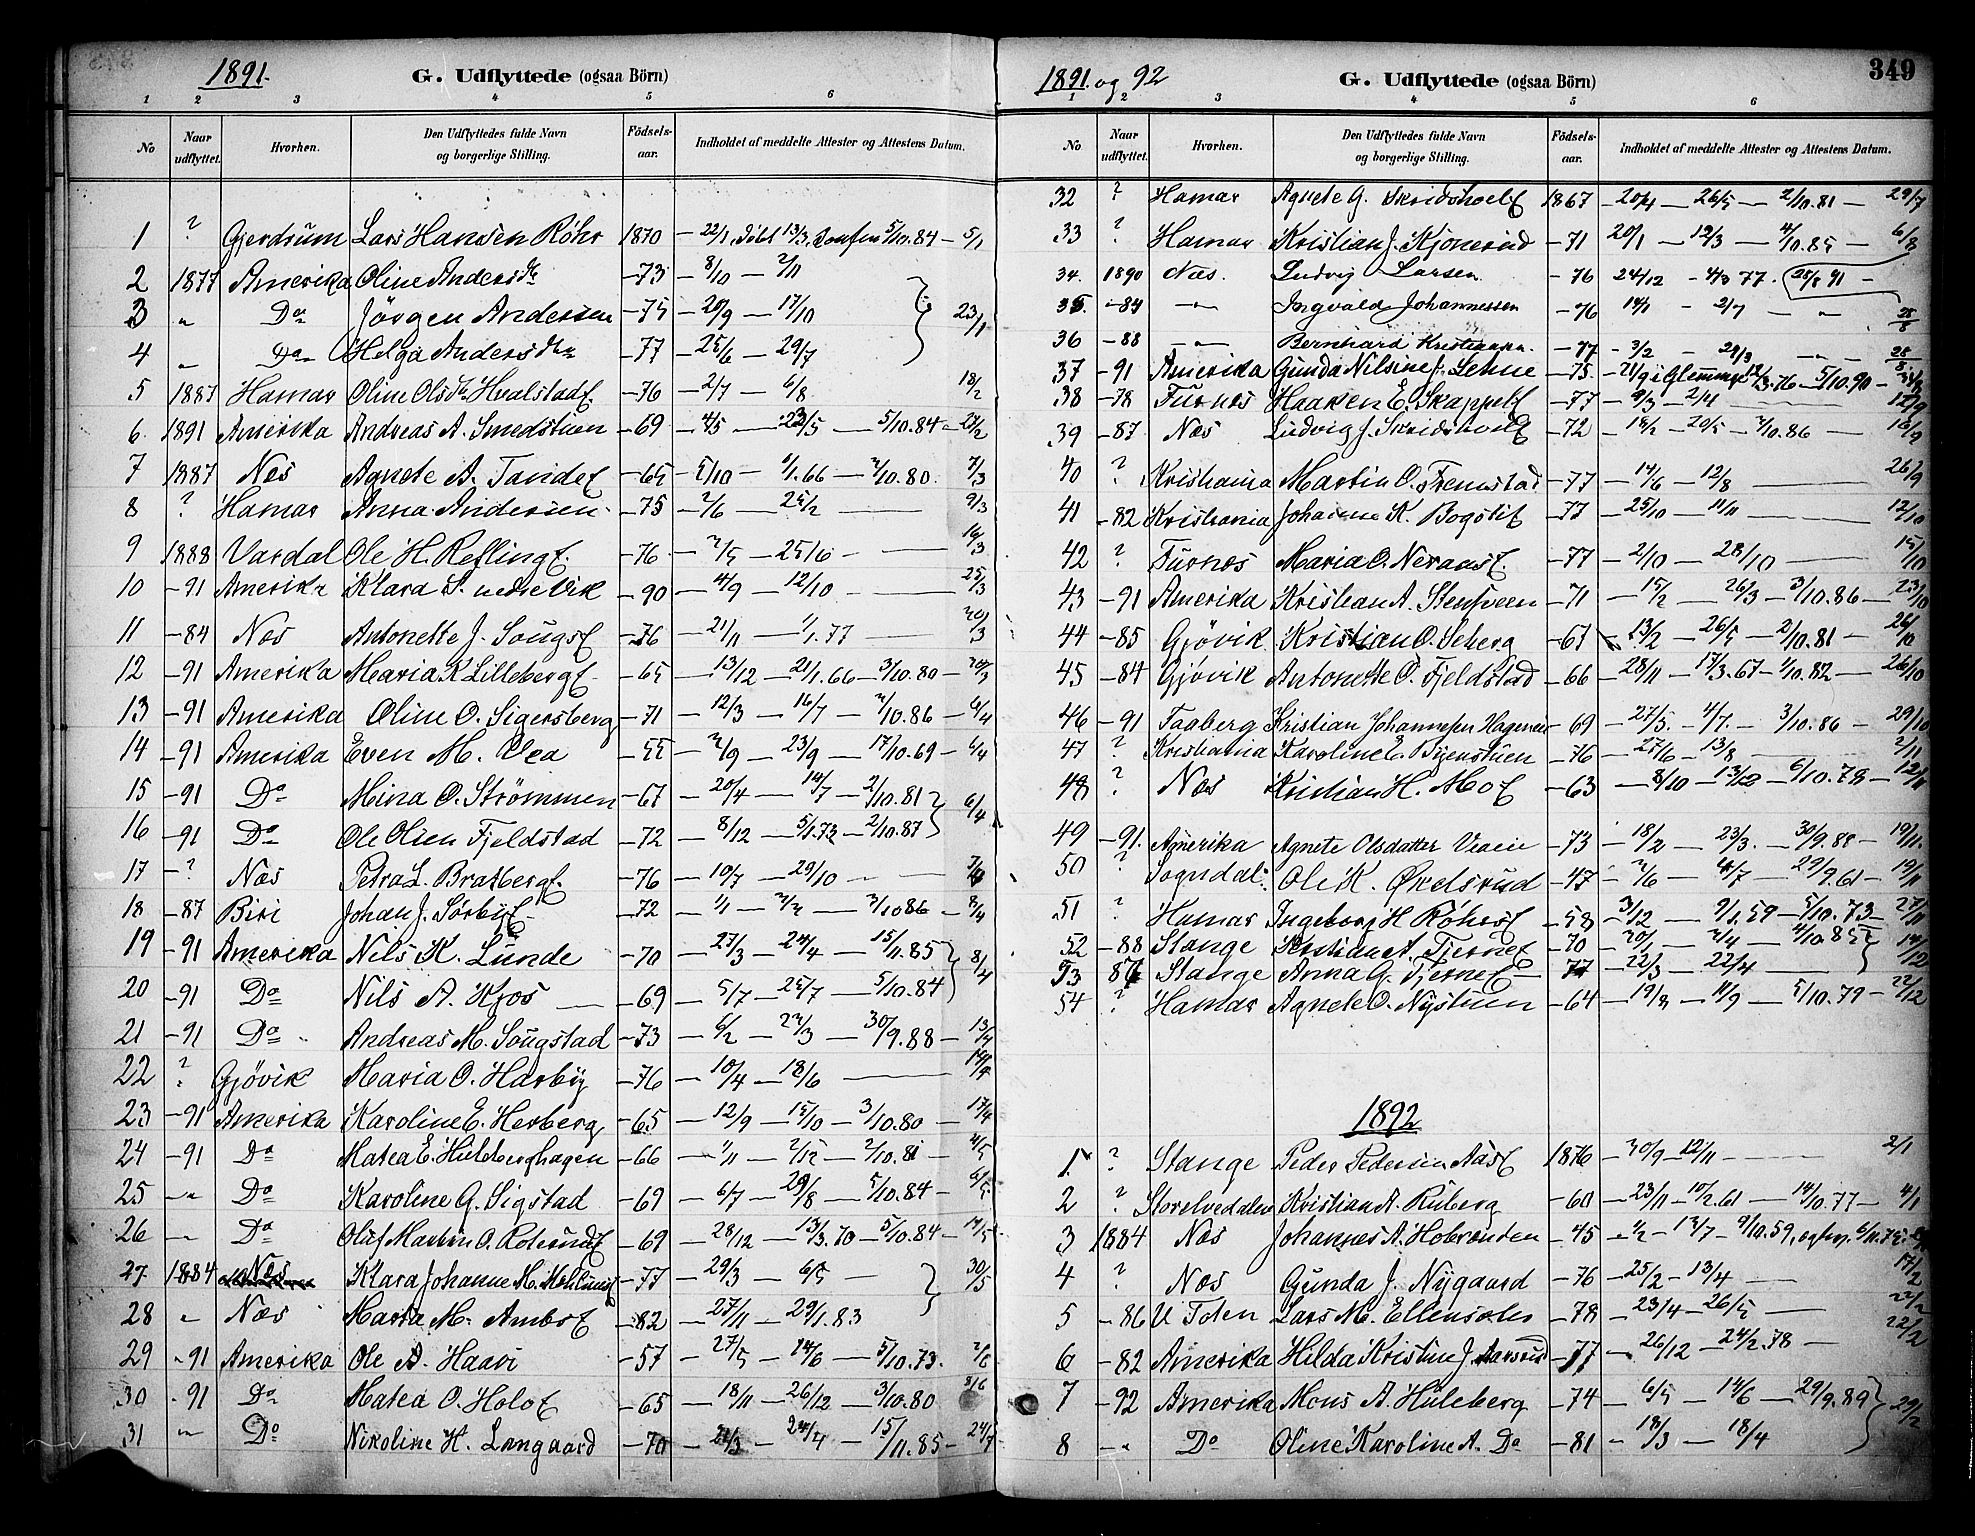 1891.
G. Udflyttede (ogsaa Börn)
1 2 3 4 5 6
No
Naar udflyttet.
Hvorhen.
Den Udflyttedes fulde Navn og borgerlige Stilling.
Födsels-aar.
Indholdet af meddelte Attester og Attestens Datum.
1 ? Gjerdrum Lars Hansen Röhr 1870 — 22/1, döbt 13/3, Konf. 5/10.84 — 5/1
2 1877 Amerika Oline Andersdtr —73 — 8/10 — 2/11
3 „ Do Jörgen Andersen —75 — 20/9 — 17/10 23/1
4 „ Do Helga Andersdtr —77 — 25/6 — 29/7
5 1887 Hamar Oline Olsdtr Hvalstadf. —76 — 2/7 6/8 18/2
6 1891 Amerika Andreas A. Smedstuen —69 — 4/5 — 23/5 — 5/10.84 — 27/2
7 1887 Næs Agnete A. Tandef —65 — 5/10 — 6/1.66 — 3/10.80 7/3
8 ? Hamar Anna Andersen —75 — 2/6 — 25/2 — 9/3
9 1888 Vardal Ole H. Reflingf. —76 — 2/5 — 25/6 — 19/3
10 —91 Amerika Klara S. nedre Vik —90 — 4/9 — 12/10 — 25/3
11 —84 Næs Antonette J. Sougsf —76 — 21/11 — 1/1.77 — 20/3
12 —91 Amerika Maria K Lillebergf. —65 — 13/12 — 21/1.66 — 3/10.80 — 20/3
13 —91 Amerika Oline O. Sigersberg —71 — 12/3 — 16/7 — 2/10.86 — 6/4
14 —91 Amerika Even M. Vea —55 — 2/9 — 23/9 — 17/10.69 — 6/4
15 —91 Do Mina O. Strömmen —67 — 20/4 — 14/7 — 2/10.81 6/4
16 —91 Do Ole Olsen Fjeldstad —72 — 8/12 — 5/1.73 — 2/10.87
17 —? Næs Petra L. Bratbergf. —76 — 10/7 — 29/10 —
18 —87 Biri Johan J. Sörbyf —72 — 1/1 — — 3/10 86 — 8/4
19 —91 Amerika Nils K. Lunde —70 — 27/3 — 24/4 — 15/11.85 8/4
20 —91 Do Nils A. Kjos —69 — 5/7 — 25/7 — 5/10.84
21 —91 Do Andreas M. Sougstad —73 — 6/2 — 23/3 — 30/9.88 — 13/4
22 ? Gjövik Maria O. Harby —76 — 10/4 — 18/6 — 14/4
23 —91 Amerika Karoline E. Herberg —65 — 12/9 — 15/10 — 3/10.80 — 17/4
24 —91 Do Matea E. Hulberghagen —66 — 1/11 — 2/12 — 2/10.81 — 4/5
25 —„ Do Karoline G. Sigstad —69 — 6/7 — 29/8 — 5/10.84
26 —„ Do Oluf Martin O. Roterudf —69 — 28/12 — 13/3.70 — 5/10.84 — 14/5
27 1884 Næs Klara Johanne M. —77 — 29/3 — 6/5 — 30/5
28 „ Næs Marta M. Ambsf —82 — 27/11 — 29/1.83
29 „91 Amerika Ole A. Haavi —57 — 27/5 — 14/6 — 5/10.73 2/6
30 —91 Do Matea O. Holof —65 — 18/11 — 26/12 — 3/10.80 8/6
31 „ Do Nikoline H. Langaard —70 — 21/3 — 24/4 — 15/11.85 — 24/7
1891. og 92
G. Udflyttede (ogsaa Börn)
349
1 2 3 4 5 6
No
Naar udflyttet.
Hvorhen.
Den Udflyttedes fulde Navn og borgerlige Stilling.
Födsels-aar.
Indholdet af meddelte Attester og Attestens Datum.
32 ? Hamar Agnete G. Skridshoelf 1867 — 20/4 — 26/5 — 2/10.81 — 29/7
33 ? Hamar Kristian J. Kjonerud —71 20/1 — 12/3 — 4/10.85 — 6/8
34. 1890 Næs. Ludvig Larsen —76 24/12 — 4/3 77. 25/8 91 —
35. —84 —„— Ingvald Johannessen —76 14/1 — 2/7 — „ 28/8
36 —88 —„— Bernhard Kristiansen —77 — 3/2 — 29/3 — 28/8
37 —91 Amerika Gunda Nilsine J. Lehne —75 — 21/9 i Glemminge 12/3.76 — 5/10.90
38 —78 Furnes Haaken E. Skappelf —77 — 9/3 — 2/4 — 12/9
39 —87 Næs Ludvig J. Skridshoelf —72 — 15/2 — 20/5 — 2/10.86 — 16/9
40 ? Kristiania Martin O. Fremstad —77 — 14/6 — 12/8 — 26/9
41 —82 Kristiania Johanne K. Bogstif —77 — 25/10 — 11/11 — 12/10
42 ? Furnes Maria O. Neransf. —77 — 2/10 — 28/10 — 15/10
43 —91 Amerika Kristian A. Stensveen —71 — 15/2 — 26/3 — 3/10.86 — 23/10
44 —85 Gjövik Kristian O. Seberg —67 — 13/2 — 26/5 — 2/10.81 — 26/10
45 —84 Gjövik Antonette O. Fjeldstad —66 — 28/11 — 17/3.67 — 1/10.82 — 26/10
46 —91 Faaberg Kristian Johannesen Hagenes —69 — 27/5. — 4/7. — 3/10.86 — 29/10
47 ? Kristiania Karoline E. Bjenstuen —76 — 27/6 — 13/8 — 2/11
48 ? Næs Kristian H. Mof —63 — 8/10 — 13/12 — 6/10.78 — 12/11
49 —91. Amerika Agnete Olsdatter —73 — 18/2 — 23/3. — 30/9.88 — 19/11.
50 ? Sogndal. Ole K. Økelsrud —47 — 2/6 — 4/7 — 29/9.61 — 19/11
51 ? Hamar Ingeborg H. Röhrsf —58 3/12 — 9/1.59 — 5/10.73 — 27/11
52 —88 Stange Kristian A. Tjernef —70 — 20/1 — 2/4 — 4/10.85 14/12
53 87 Stange Anna G. Tjernef —77 — 22/3 — 22/4 —
54 ? Hamar Agnete O. Nystuen —64 — 19/8 — 11/9 — 5/10.79 — 22/12
1892
1. ? Stange Peder Pedersen Aasf 1876 — 30/9 — 12/11 — 2/1
2 ? Storelvedalen Kristian A. Ruberg —60 — 23/11 — 10/2.61 — 14/10.77 — 4/1
3 1884 Næs Johannes A. Hobrenden —45 — 1/2 — 13/7 — 9/10.59,
4 ? Næs Gunda J. Nygaard —76 — 25/2 — 13/4 — 17/2
5 —86 V Toten Lars M. Ellensoles —78 — 23/4 — 26/5 — 22/2
6 —82 Amerika Hilda Kristine J. Aarsrud —77 — 26/12 — 24/2.78 — 22/2
7 —92 Amerika Mons A. Huleberg —74 — 6/5 — 14/6 — 29/9.89 29/2
8 —„ Do Oline Karoline A. Do —81 — 18/3 — 18/4